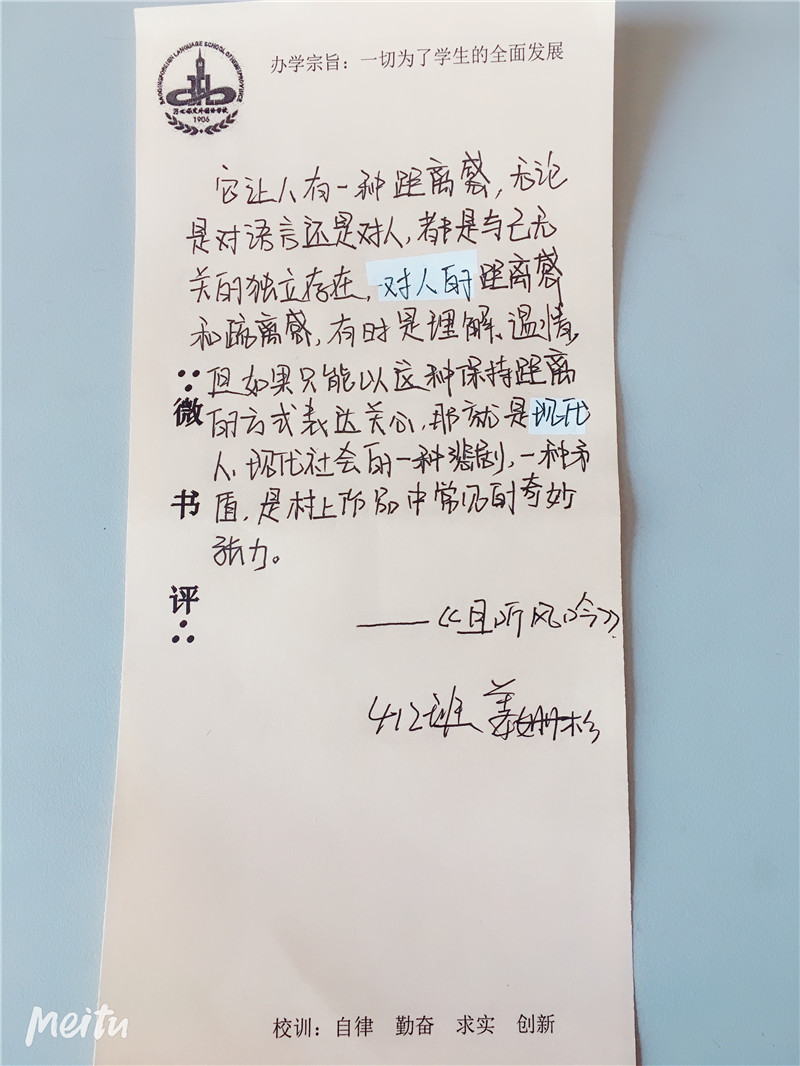 办学宗旨：一切为了学生的全面发展
1906
它让人有一种距离感，无论
是对语言还是对人，都是与己无
关的独立存在，对人的距离感
和疏离感，有时是理解、温情，
但如果只能以这种保持距离
的方式表达关心，那就是现代
人、现代社会的一种悲剧，一种矛
盾，是村上作品中常见的奇妙
张力。
——《且听风吟》
412班 姜姗杉
微书评
校训：自律 勤奋 求实 创新
Meitu